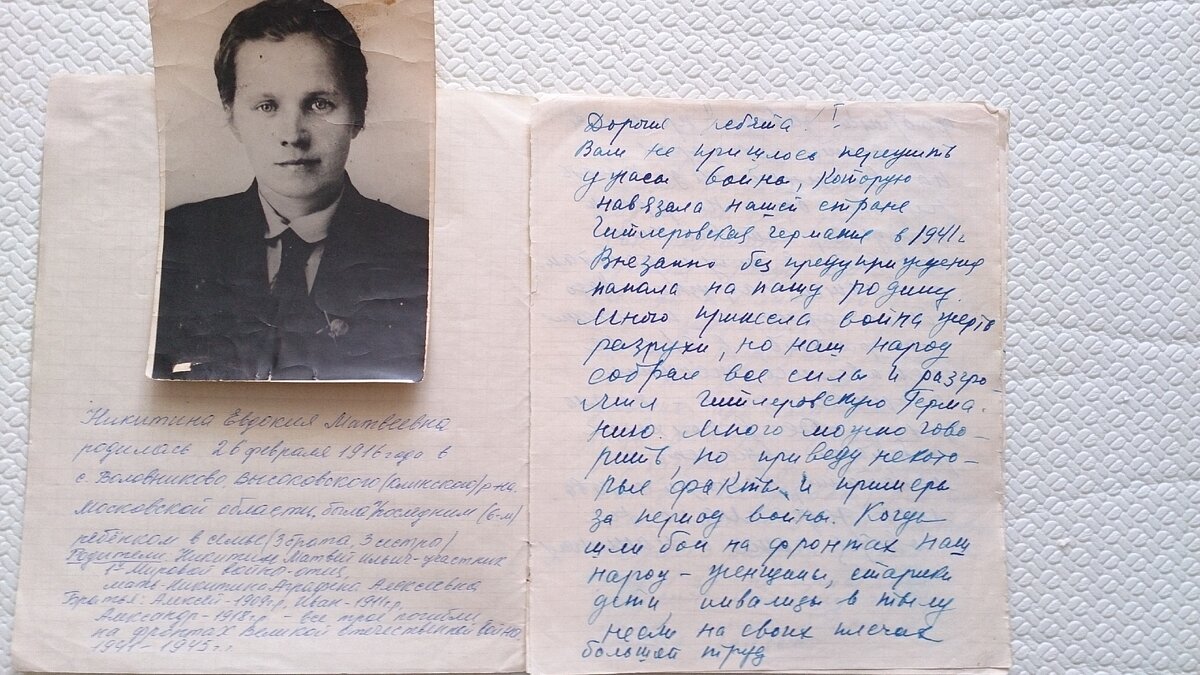 Никитина Евдокия Матвеевна
родилась 26 февраля 1916 года в
с. Воловниково Высоковского /Клинского/ р-на
Московской области, была последним (6-м)
ребёнком в семье /3 брата, 3 сестры/
Родители: Никитин Матвей Ильич - участник
1й Мировой войны - отец,
мать Никитина Аграфена Алексеевна
Братья: Алексей - 1909г.р, Иван - 1911г.р,
Александр - 1918г.р - все трое погибли
на фронтах Великой Отечественной войны
1941 - 1945 г.г
I
Дорогие ребята!
Вам не пришлось пережить
ужасы войны, которую
навязала нашей стране
Гитлеровская Германия в 1941г
Внезапно без предупреждения
напала на нашу родину.
Много принесла война жертв
разрухи, но наш народ
собрал все силы и разгро-
мил Гитлеровскую Герма-
нию. Много можно гово-
рить, но приведу некото-
рые факты и примеры
за период войны. Когда
шли бои на фронтах наш
народ - женщины, старики
дети, инвалиды в тылу
несли на своих плечах
большой труд